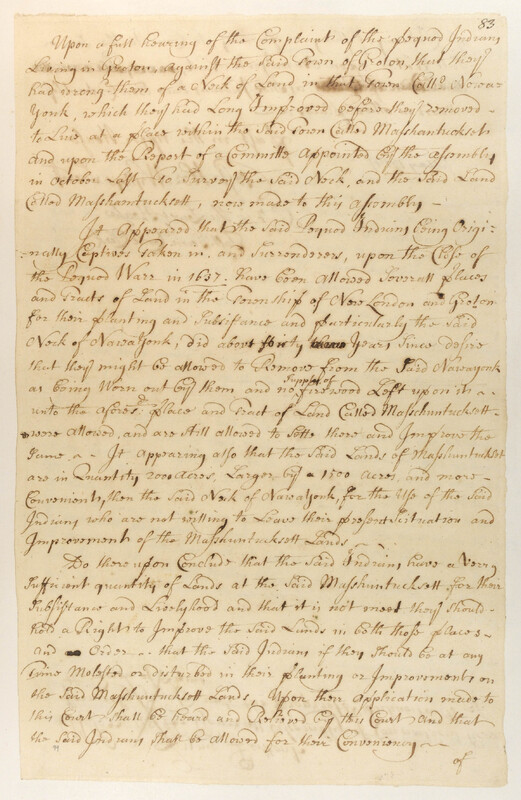 83
Upon a full hearing of the Complaint of the Pequod Indians
Living in Groton, against the said Town of Groton, that they
had wrong them of a Neck of Land, in that Town Calld Nawa
Yonk, which they had Long Improved before they removed
to Live at a place within the Said Town Called Masshantucksett
And upon the Report of a Committe Appointed by the assembly
in October Last to Survey the Said Neck, and the Said Land
Called Masshantucksett, now made to this assembly -
It Appeared that the Said Pequod Indians being Origi-
nally Captives taken in, and Surrenderers, upon the Close of
the Pequod Warr in 1637. Have been Allowed Severall places
and Tracts of Land in the Township of New London and Groton
for their planting and Subsistance and particularly the Said
Neck of Nawayonk, did about fourty Years Since desire
that they might be allowed to Remove from the Said Nawayonk
as being Worn out by them and no Supply of firewood Left upon it
unto the afores.d place and Tract of Land Called Masshuntucksett
were allowed, and are still allowed to Settle there and Improve the
Same. It Appearing also that the Said Lands of Masshuntuckset
are in Quantity 2000 Acres, Larger by 1500 Acres and more
Convenient, then the Said Neck of Nawayonk, for the Use of the Said
Indians who are not willing to Leave their present Scituation and
Improvement of the Masshuntucksett Lands
Do thereupon Conclude that the Said Indians have a Very
Sufficient quantity of Lands at the Said Masshuntucksett for their
Subsistance and Livelyhood and that it is not meet they Should
hold a Right to Improve the Said Lands in both those places
And Order that the Said Indians if they Should be at any
Time Molested or disturbed in their planting or Improvements on
the Said Masshuntucksett Lands, Upon their Application made to
this Court Shall be heard and Relieved by this Court And that
the Said Indians Shall be allowed for their Conveniency
of